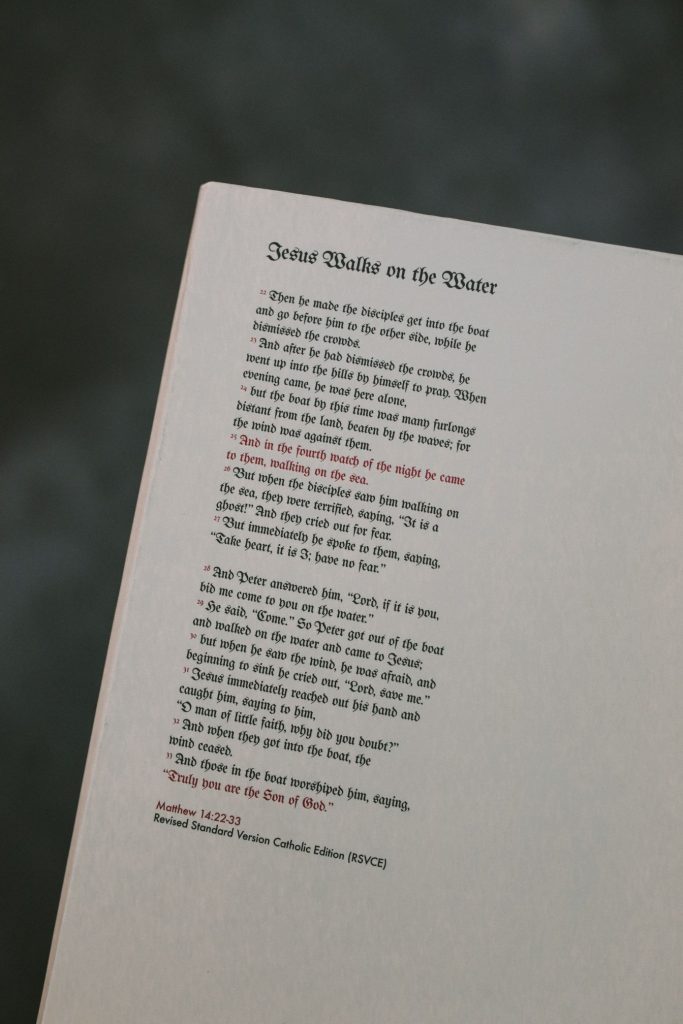 Jesus Walks on the Water
22 Then he made the disciples get into the boat
and go before him to the other side, while he
dismissed the crowds.
23 And after he had dismissed the crowds, he
went up into the hills by himself to pray. When
evening came, he was here alone,
24 but the boat by this time was many furlongs
distant from the land, beaten by the waves; for
the wind was against them.
25 And in the fourth watch of the night he came
to them, walking on the sea.
26 But when the disciples saw him walking on
the sea, they were terrified, saying, “It is a
ghost!” And they cried out for fear.
27 But immediately he spoke to them, saying,
“Take heart, it is I; have no fear.”
28 And Peter answered him, “Lord, if it is you,
bid me come to you on the water.”
29 He said, “Come.” So Peter got out of the boat
and walked on the water and came to Jesus;
30 but when he saw the wind, he was afraid, and
beginning to sink he cried out, “Lord, save me.”
31 Jesus immediately reached out his hand and
caught him, saying to him,
“O man of little faith, why did you doubt?”
32 And when they got into the boat, the
wind ceased.
33 And those in the boat worshiped him, saying,
“Truly you are the Son of God.”
Matthew 14:22-33
Revised Standard Version Catholic Edition (RSVCE)